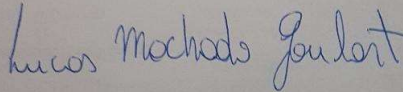 Lucas Machado Goulart